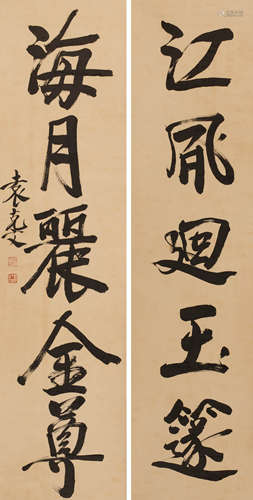 江風迴玉篴
海月麗金尊
袁克文